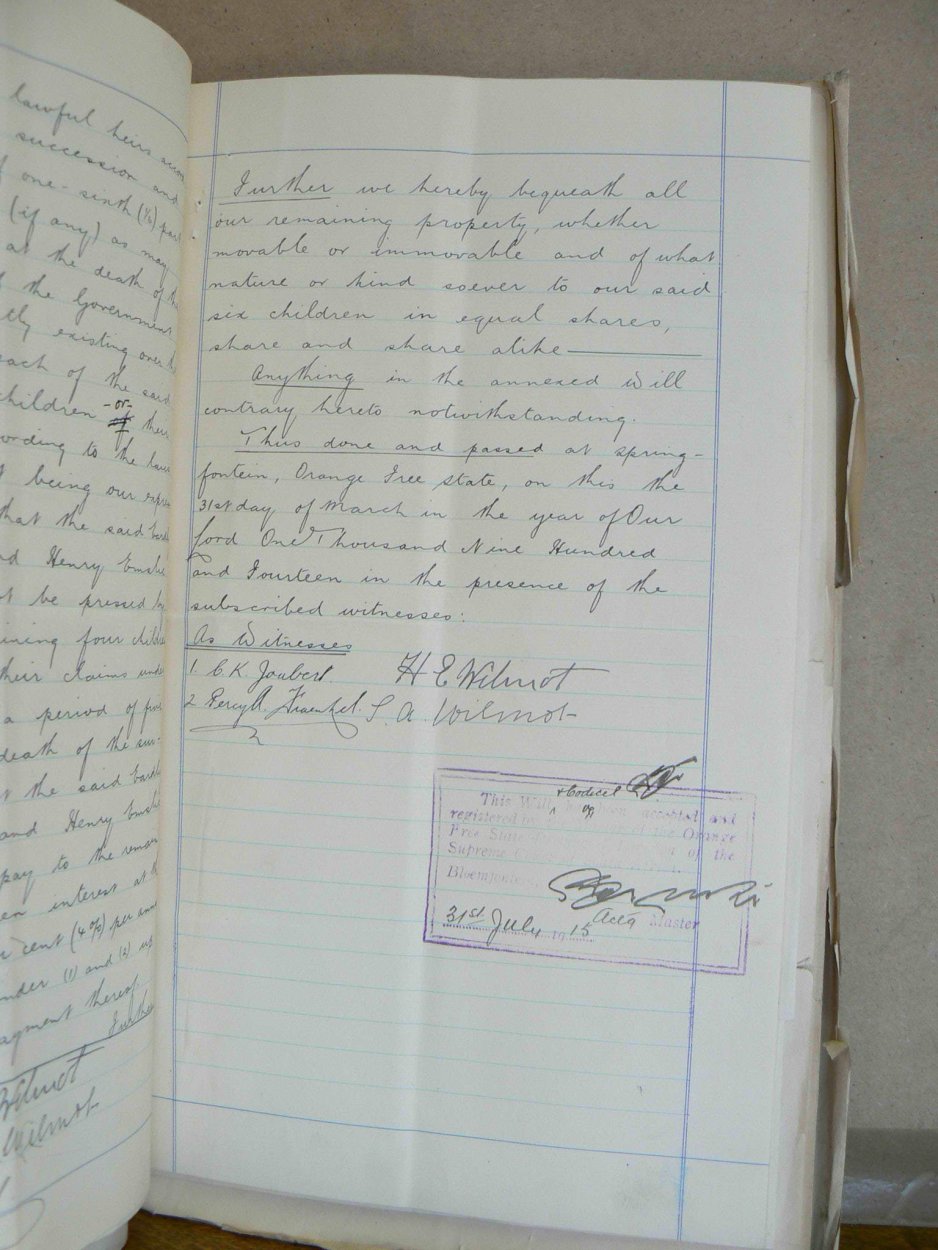 lawful heirs
succession and
one-sixth (1/6) part
(if any) as may
at the death of the
the Government
existing over
each of the said
children -or- their
according to the laws
being our
that the said
and Henry
be pressed by
remaining four children
their claims under
a period of five
death of the
the said
and Henry
pay to the
interest at
cent (4%) per
under (1) and (2)
payment thereof
Further
Wilmot
Wilmot
Further we hereby bequeath all
our remaining property, whether
movable or immovable and of what
nature or kind soever to our said
six children in equal shares,
share and share alike
Anything in the annexed Will
contrary hereto notwithstanding.
Thus done and passed at Spring-
fontein, Orange Free State, on this the
31st day of March in the year of Our
Lord One Thousand Nine Hundred
and Fourteen in the presence of the
subscribed witnesses:
As Witnesses
1. C. K. Joubert H E Wilmot
2 Percy A. Fraenkel. S. A. Wilmot
+ Codicil
This Will been accepted and
registered by of the Orange
Free State of the
Supreme Court of South Africa
Bloemfontein
31st July 1915 Actg Master